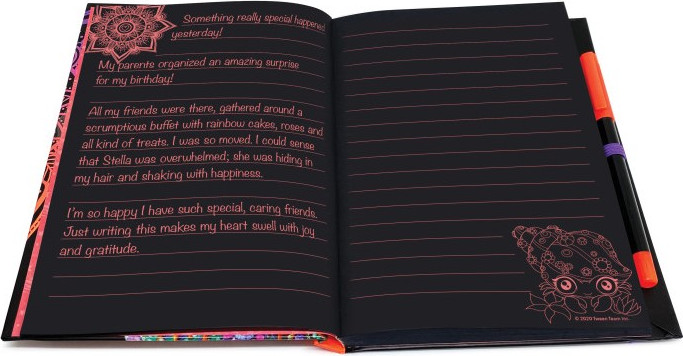 Something really special happened
yesterday!
My parents organized an amazing surprise
for my birthday!
All my friends were there, gathered around a
scrumptious buffet with rainbow cakes, roses and
all kind of treats. I was so moved. I could sense
that Stella was overwhelmed; she was hiding in
my hair and shaking with happiness.
I'm so happy I have such special, caring friends.
Just writing this makes my heart swell with joy
and gratitude.
© 2020 Tween Team Inc.